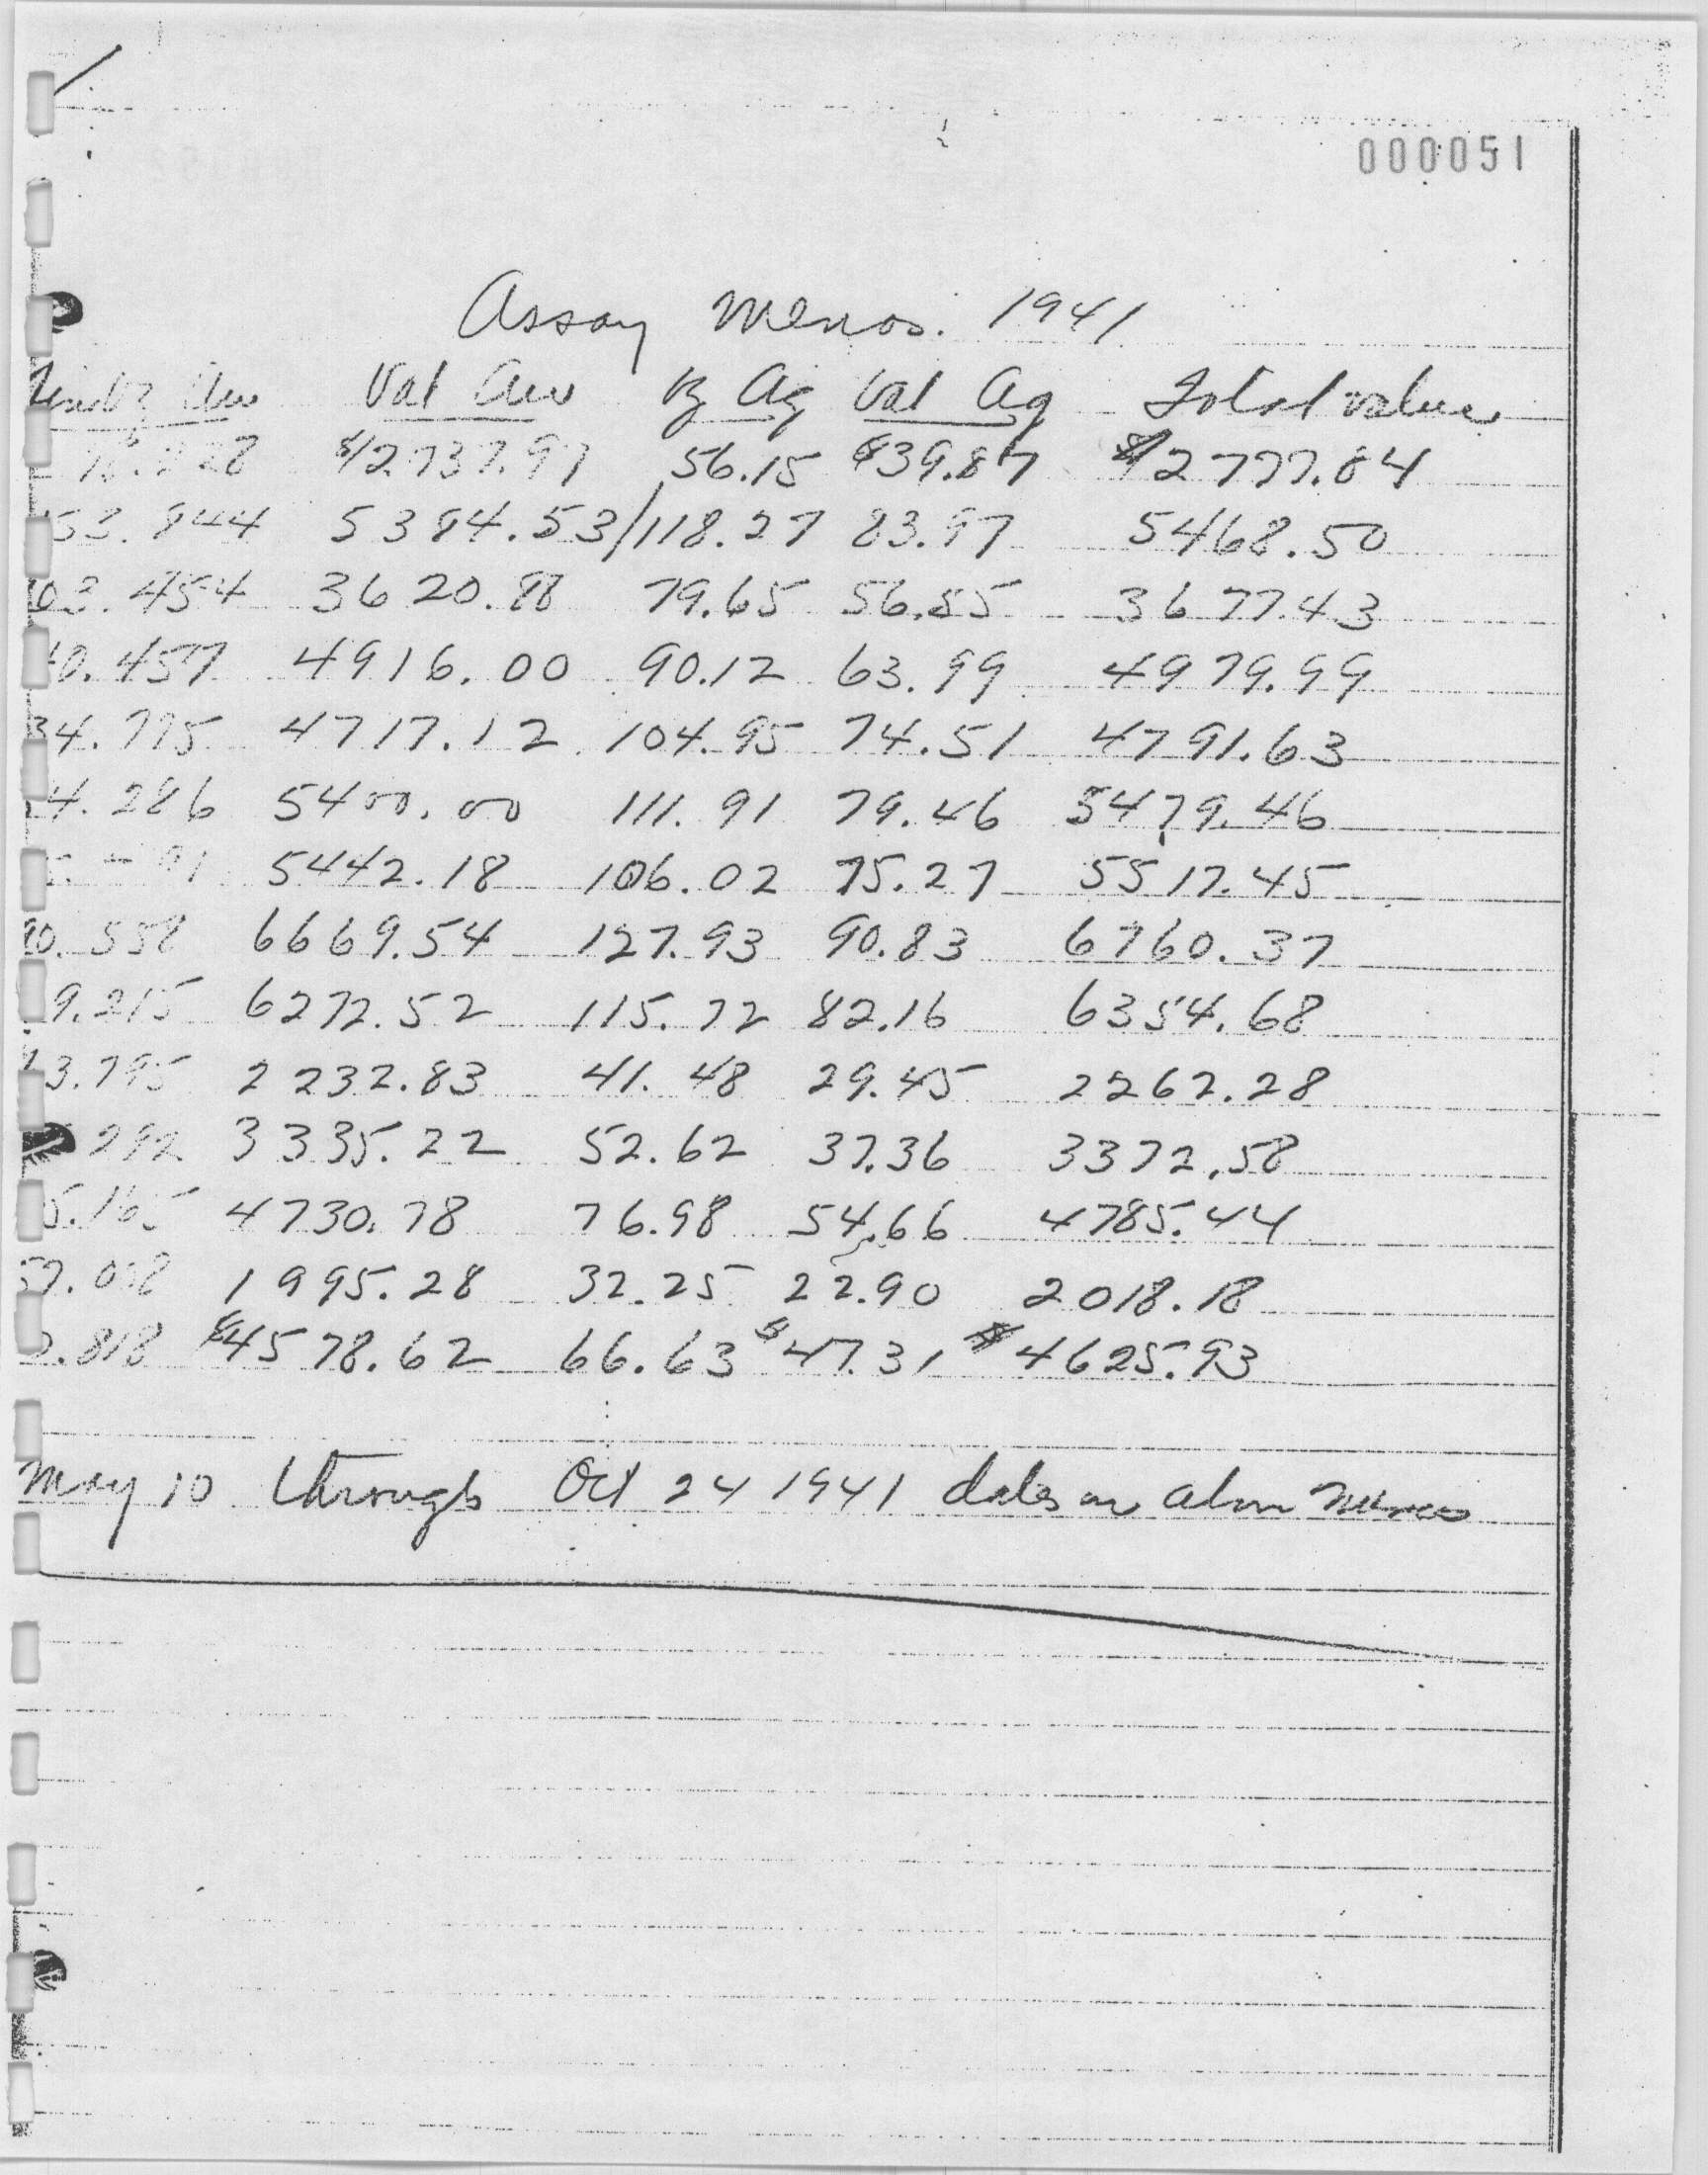 000051
Assay Memos. 1941
Au Val Au oz Ag Val Ag Total value
$2737.97 56.15 $39.87 $2777.84
53.844 5384.53/118.27 83.97 5468.50
03.454 3620.88 79.65 56.55 3677.43
40.457 4916.00 90.12 63.99 4979.99
34.775 4717.12 104.95 74.51 4791.63
4.286 5400.00 111.91 79.46 5479.46
5442.18 106.02 75.27 5517.45
90.558 6669.54 127.93 90.83 6760.37
9.215 6272.52 115.72 82.16 6354.68
3.795 2232.83 41.48 29.45 2262.28
292 3335.22 52.62 37.36 3372.58
5.165 4730.78 76.98 54.66 4785.44
57.008 1995.28 32.25 22.90 2018.18
0.818 $4578.62 66.63 $47.31 $4625.93
May 10 through Oct 24 1941 dates on above memos